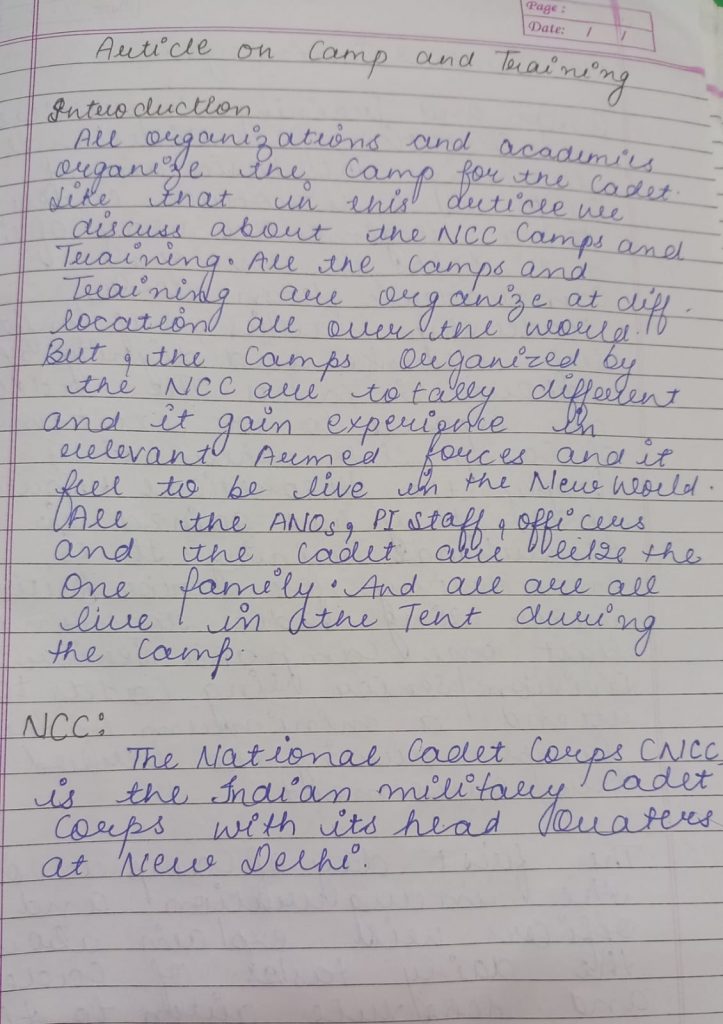 Page :
Date: / /
Article on Camp and Training
Introduction
All organizations and academics
organize the Camp for the Cadet.
Like that in this article we
discuss about the NCC Camps and
Training. All the Camps and
Training are organize at diff.
location all over the world.
But, the Camps Organized by
the NCC are totally different
and it gain experience in
relevant Armed forces and it
feel to be live in the New World.
All the ANOs, PI Staff, officers
and the Cadet are like the
One family. And all are all
live in the Tent during
the Camp.
NCC:
The National Cadet Corps (NCC
is the Indian military Cadet
Corps with its head Quaters
at New Delhi.